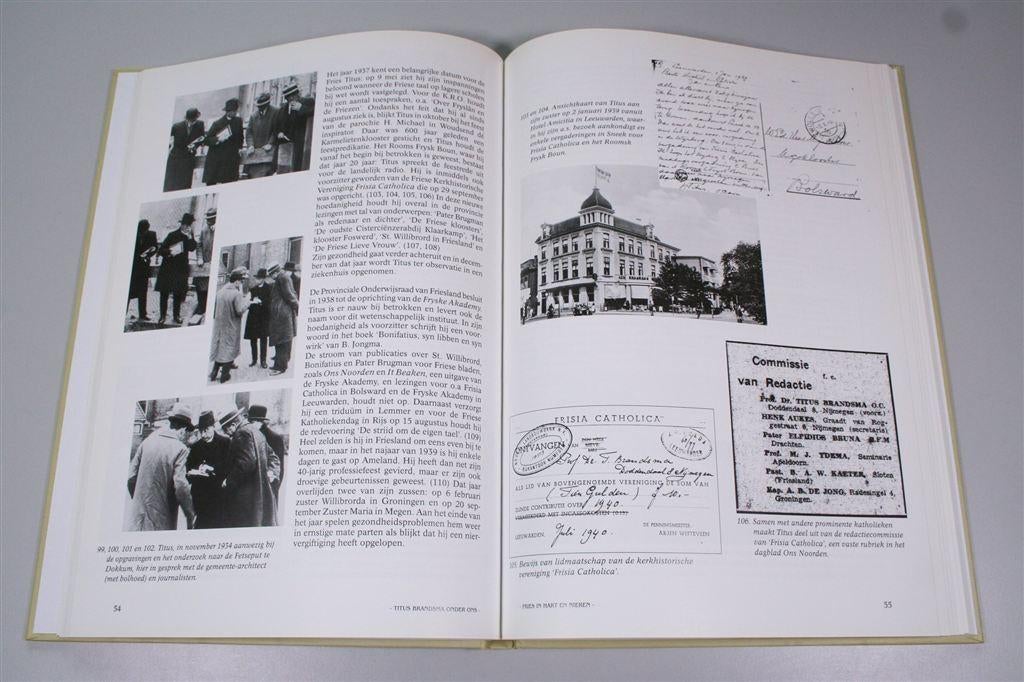 Het jaar 1937 kent een belangrijke datum voor de
Fries Titus: op 9 mei ziet hij zijn inspanningen
beloond wanneer de Friese taal op lagere scholen
bij wet wordt vastgelegd. Voor de K.R.O. houdt
hij een aantal toespraken, o.a. 'Over Fryslân en
de Friezen'. Ondanks het feit dat hij al sinds
augustus ziek is, blijkt Titus in oktober bij het feest
van de parochie H. Michael in Woudsend de
inspirator. Daar was 600 jaar geleden een
Karmelietenklooster gesticht en Titus houdt de
feestpredikatie. Het Rooms Frysk Boun, waar hij
vanaf het begin bij betrokken is geweest, bestaat
dat jaar 20 jaar: Titus spreekt de feestrede uit
voor de landelijk radio. Hij is inmiddels ook
voorzitter geworden van de Friese Kerkhistorische
Vereniging Frisia Catholica die op 29 september
was opgericht. (103, 104, 105, 106) In deze nieuwe
hoedanigheid houdt hij overal in de provincie
lezingen met tal van onderwerpen: 'Pater Brugman
als redenaar en dichter', 'De Friese kloosters',
'De oudste Cisterciënzerabdij Klaarkamp', 'Het
klooster Foswerd', 'St. Willibrord in Friesland' en
'De Friese Lieve Vrouw'. (107, 108)
Zijn gezondheid gaat verder achteruit en in decem-
ber van dat jaar wordt Titus ter observatie in een
ziekenhuis opgenomen.
De Provinciale Onderwijsraad van Friesland besluit
in 1938 tot de oprichting van de Fryske Akademy.
Titus is er nauw bij betrokken en levert ook de
naam voor dit wetenschappelijk instituut. In zijn
hoedanigheid als voorzitter schrijft hij een voor-
woord in het boek 'Bonifatius, syn libben en syn
wirk' van B. Jongma.
De stroom van publicaties over St. Willibrord,
Bonifatius en Pater Brugman voor Friese bladen,
zoals Ons Noorden en It Beaken, een uitgave van
de Fryske Akademy, en lezingen voor o.a Frisia
Catholica in Bolsward en de Fryske Akademy in
Leeuwarden, houdt niet op. Daarnaast verzorgt
hij een triduüm in Lemmer en voor de Friese
Katholiekendag in Rijs op 15 augustus houdt hij
de redevoering 'De striid om de eigen tael'. (109)
Heel zelden is hij in Friesland om eens even bij te
komen, maar in het najaar van 1939 is hij enkele
dagen te gast op Ameland. Hij heeft dan net zijn
40-jarig professiefeest gevierd, maar er zijn ook
droevige gebeurtenissen geweest. (110) Dat jaar
overlijden twee van zijn zussen: op 6 februari
zuster Willibrorda in Groningen en op 20 sep-
tember Zuster Maria in Megen. Aan het einde van
het jaar spelen gezondheidsproblemen hem weer
in ernstige mate parten als blijkt dat hij een nier-
vergiftiging heeft opgelopen.
99, 100, 101 en 102. Titus, in november 1934 aanwezig bij
de opgravingen en het onderzoek naar de Fetseput te
Dokkum, hier in gesprek met de gemeente-architect
(met bolhoed) en journalisten.
54
- TITUS BRANDSMA ONDER ONS -
103 en 104. Ansichtkaart van Titus aan
zijn zuster op 2 januari 1939 vanuit
Hotel Amicitia in Leeuwarden, waar-
in hij zijn a.s. bezoek aankondigt en
enkele vergaderingen in Sneek voor
Frisia Catholica en het Roomsk
Frysk Boun.
Bolsward
FRISIA CATHOLICA
ONTVANGEN
Prof. Dr. T. Brandsma
Doddendaal 8 Nijmegen
ALS LID VAN BOVENGENOEMDE VERENIGING DE SOM VAN
(Tien Gulden) ƒ 10.-
ZIJNDE CONTRIBUTIE OVER 1940.
VERMEERDERD MET INCASSOKOSTEN
DE PENNINGMEESTER,
LEEUWARDEN, Juli 1940. ARJEN WITTEVEEN
105. Bewijs van lidmaatschap van de kerkhistorische
vereniging 'Frisia Catholica'.
Commissie
van Redactie f. c.
Prof. Dr. TITUS BRANDSMA O.C.
Doddendaal 8, Nijmegen (voorz.)
HENK AUKES, Graadt van Rog-
gestraat 8, Nijmegen (secretaris)
Pater ELPIDIUS BRUNA O.F.M
Drachten.
Prof. M. J. YDEMA, Seminarie
Apeldoorn.
Past. B. A. W. KAETER, Sloten
(Friesland)
Kap. A. B. DE JONG, Radesingel 4,
Groningen.
106. Samen met andere prominente katholieken
maakt Titus deel uit van de redactiecommissie
van 'Frisia Catholica', een vaste rubriek in het
dagblad Ons Noorden.
- FRIES IN HART EN NIEREN -
55